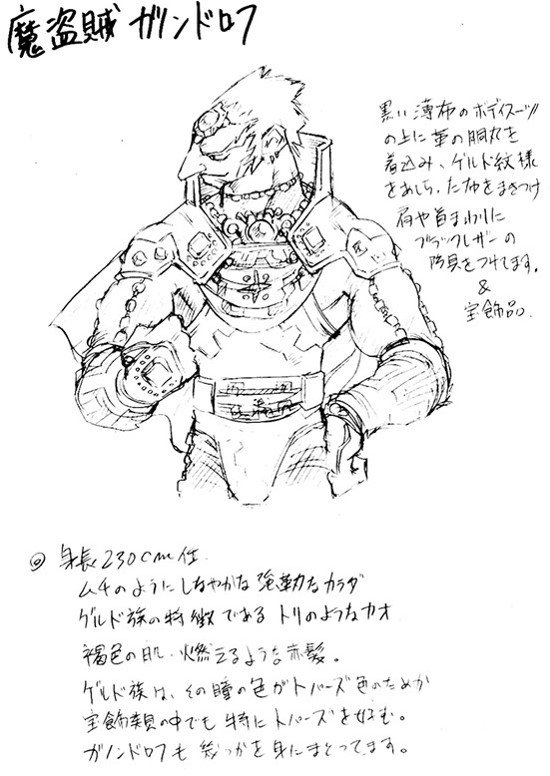 魔盗賊 ガノンドロフ
黒い薄布のボディスーツ
の上に革の胴丸を
着込み、ゲルド紋様
をあしらった布をまきつけ
肩や首まわりに
ブラックレザーの
防具をつけます。
&
宝飾品。
◎ 身長230cm位
ムチのようにしなやかな強靭なカラダ
ゲルド族の特徴であるトリのようなカオ
褐色の肌・燃えるような赤髪。
ゲルド族は、その瞳の色がトパーズ色のためか
宝飾類の中でも特にトパーズを好む。
ガノンドロフも幾つかを身にまとってます。